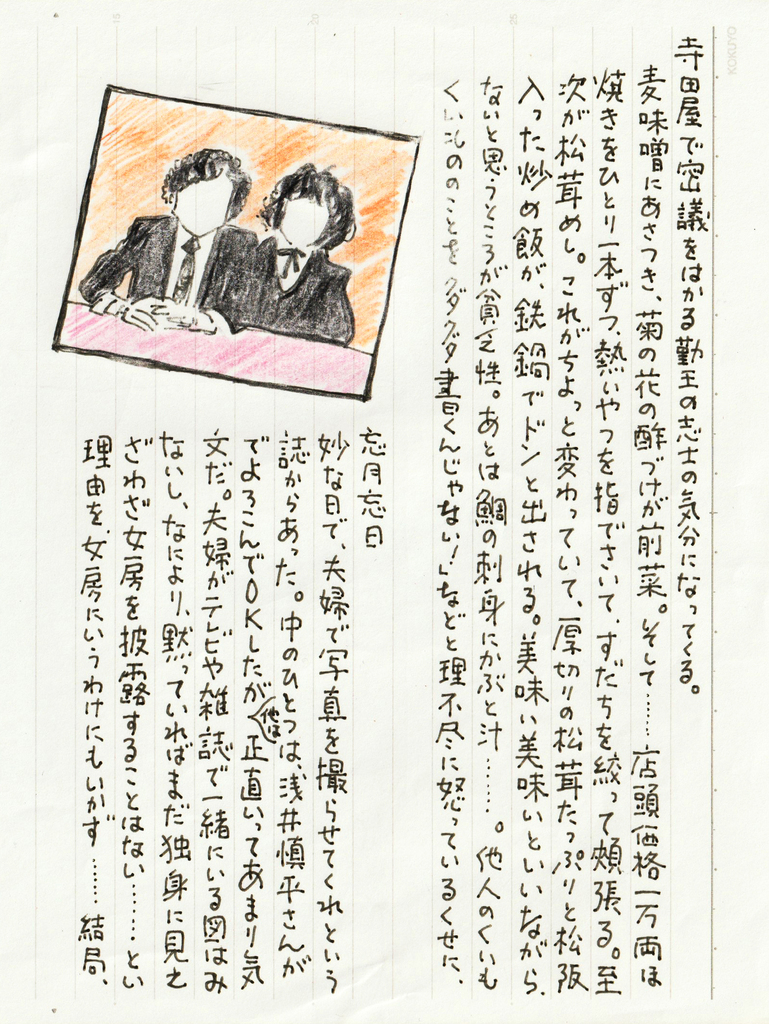 寺田屋で密議をはかる勤王の志士の気分になってくる。
麦味噌にあさつき、菊の花の酢づけが前菜。そして……店頭価格一万両ほ
焼きをひとり一本ずつ、熱いやつを指でさいて、すだちを絞って頬張る。至
次が松茸めし。これがちょっと変わっていて、厚切りの松茸たっぷりと松阪
入った炒め飯が、鉄鍋でドンと出される。美味い美味いといいながら、
ないと思うところが貧乏性。あとは鯛の刺身にかぶと汁……。他人のくいも
くいもののことをグダグダ書くんじゃない!」などと理不尽に怒っているくせに、
忘月忘日
妙な日で、夫婦で写真を撮らせてくれという
誌からあった。中のひとつは、浅井慎平さんが
でよろこんでOKしたが他は正直いってあまり気
文だ。夫婦がテレビや雑誌で一緒にいる図はみ
ないし、なにより、黙っていればまだ独身に見え
ざわざ女房を披露することはない……とい
理由を、女房にいうわけにもいかず……結局、
KOKUYO
15
20
25